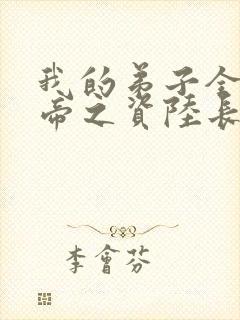 我的弟子全
帝之資陸長
李會芬